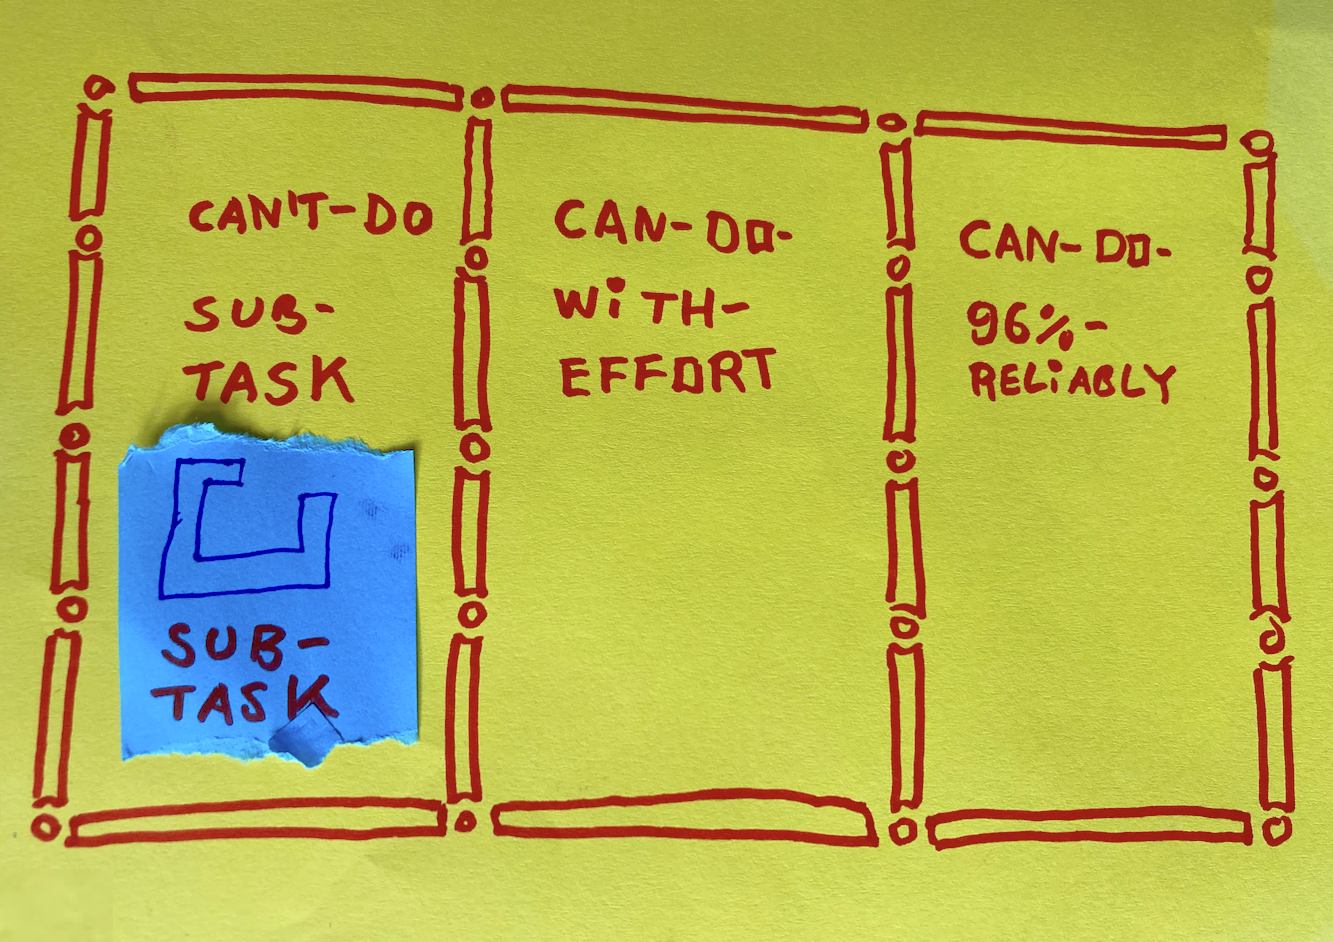 CAN'T-DO
SUB-
TASK
SUB-
TASK
CAN-DO-
WiTH-
EFFORT
CAN-DO-
96%-
RELiABLY